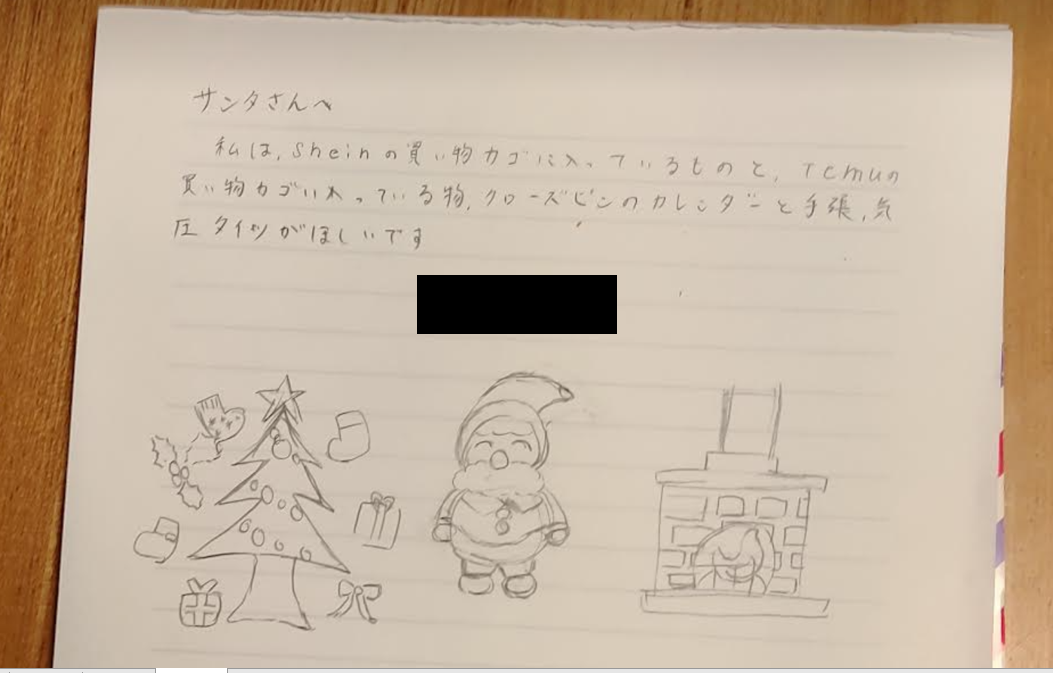 サンタさんへ
私は、Sheinの買い物カゴに入っているものと、Temuの
買い物カゴいれっている物、クローズピンのカレンダーと手張、気
圧タイツがほしいです